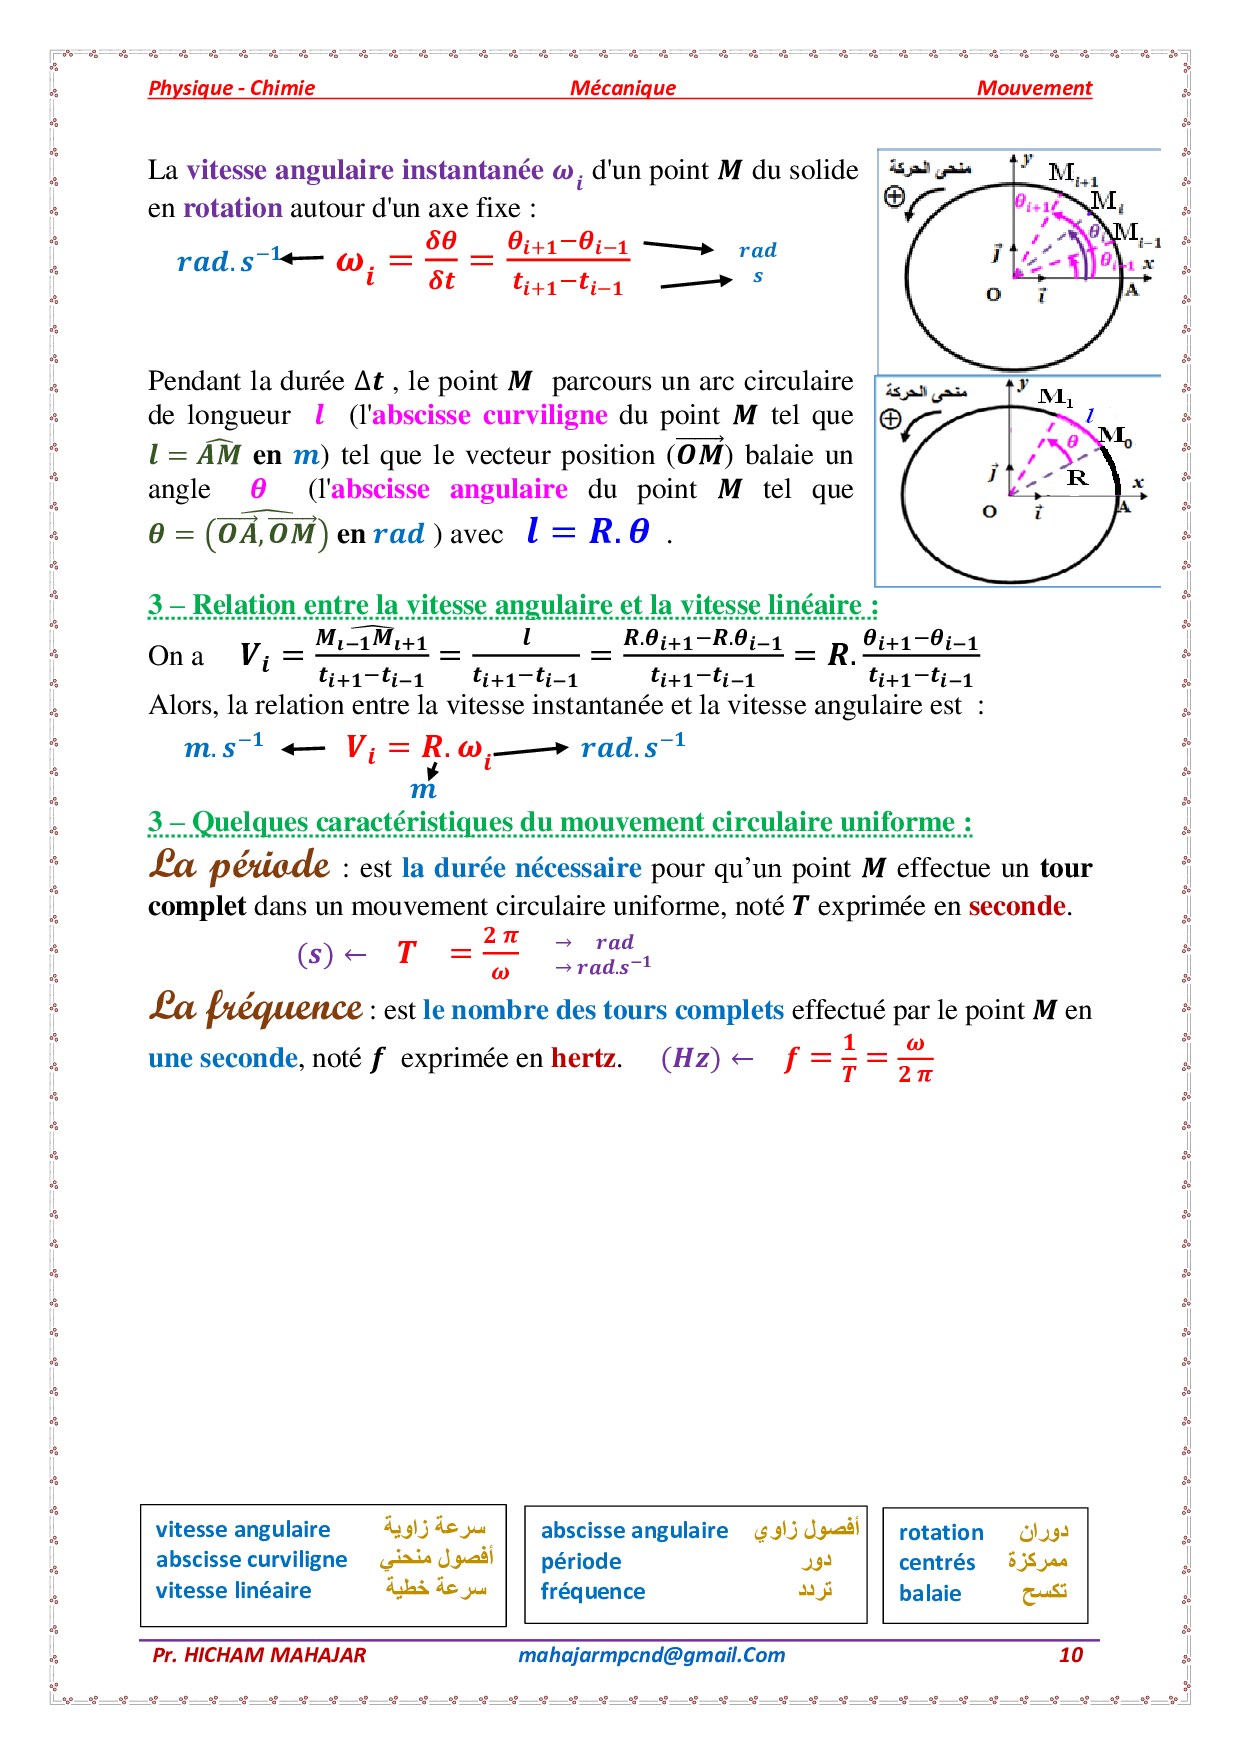 Physique - Chimie Mécanique Mouvement
La vitesse angulaire instantanée ωᵢ d'un point M du solide
en rotation autour d'un axe fixe :
rad.s⁻¹ ← ωᵢ = δθ/δt = (θᵢ₊₁−θᵢ₋₁)/(tᵢ₊₁−tᵢ₋₁) → rad → s
منحى الحركة
⊕ y Mᵢ₊₁ Mᵢ Mᵢ₋₁ θᵢ₊₁ θᵢ θᵢ₋₁ x j⃗ O i⃗ A
Pendant la durée Δt , le point M parcours un arc circulaire
de longueur l (l'abscisse curviligne du point M tel que
l = AM̂ en m) tel que le vecteur position (OM⃗) balaie un
angle θ (l'abscisse angulaire du point M tel que
θ = (OA⃗, OM⃗) en rad ) avec l = R. θ .
منحى الحركة
⊕ y M₁ l M₀ θ R x j⃗ O i⃗ A
3 – Relation entre la vitesse angulaire et la vitesse linéaire :
On a Vᵢ = Mᵢ₋₁Mᵢ₊₁/(tᵢ₊₁−tᵢ₋₁) = l/(tᵢ₊₁−tᵢ₋₁) = (R.θᵢ₊₁−R.θᵢ₋₁)/(tᵢ₊₁−tᵢ₋₁) = R. (θᵢ₊₁−θᵢ₋₁)/(tᵢ₊₁−tᵢ₋₁)
Alors, la relation entre la vitesse instantanée et la vitesse angulaire est :
m.s⁻¹ ← Vᵢ = R. ωᵢ → rad.s⁻¹
m
3 – Quelques caractéristiques du mouvement circulaire uniforme :
La période : est la durée nécessaire pour qu’un point M effectue un tour
complet dans un mouvement circulaire uniforme, noté T exprimée en seconde.
(s) ← T = 2 π/ω → rad → rad.s⁻¹
La fréquence : est le nombre des tours complets effectué par le point M en
une seconde, noté f exprimée en hertz. (Hz) ← f = 1/T = ω/2 π
vitesse angulaire سرعة زاوية
abscisse curviligne أفصول منحني
vitesse linéaire سرعة خطية
abscisse angulaire أفصول زاوي
période دور
fréquence تردد
rotation دوران
centrés ممركزة
balaie تكسح
Pr. HICHAM MAHAJAR mahajarmpcnd@gmail.Com 10